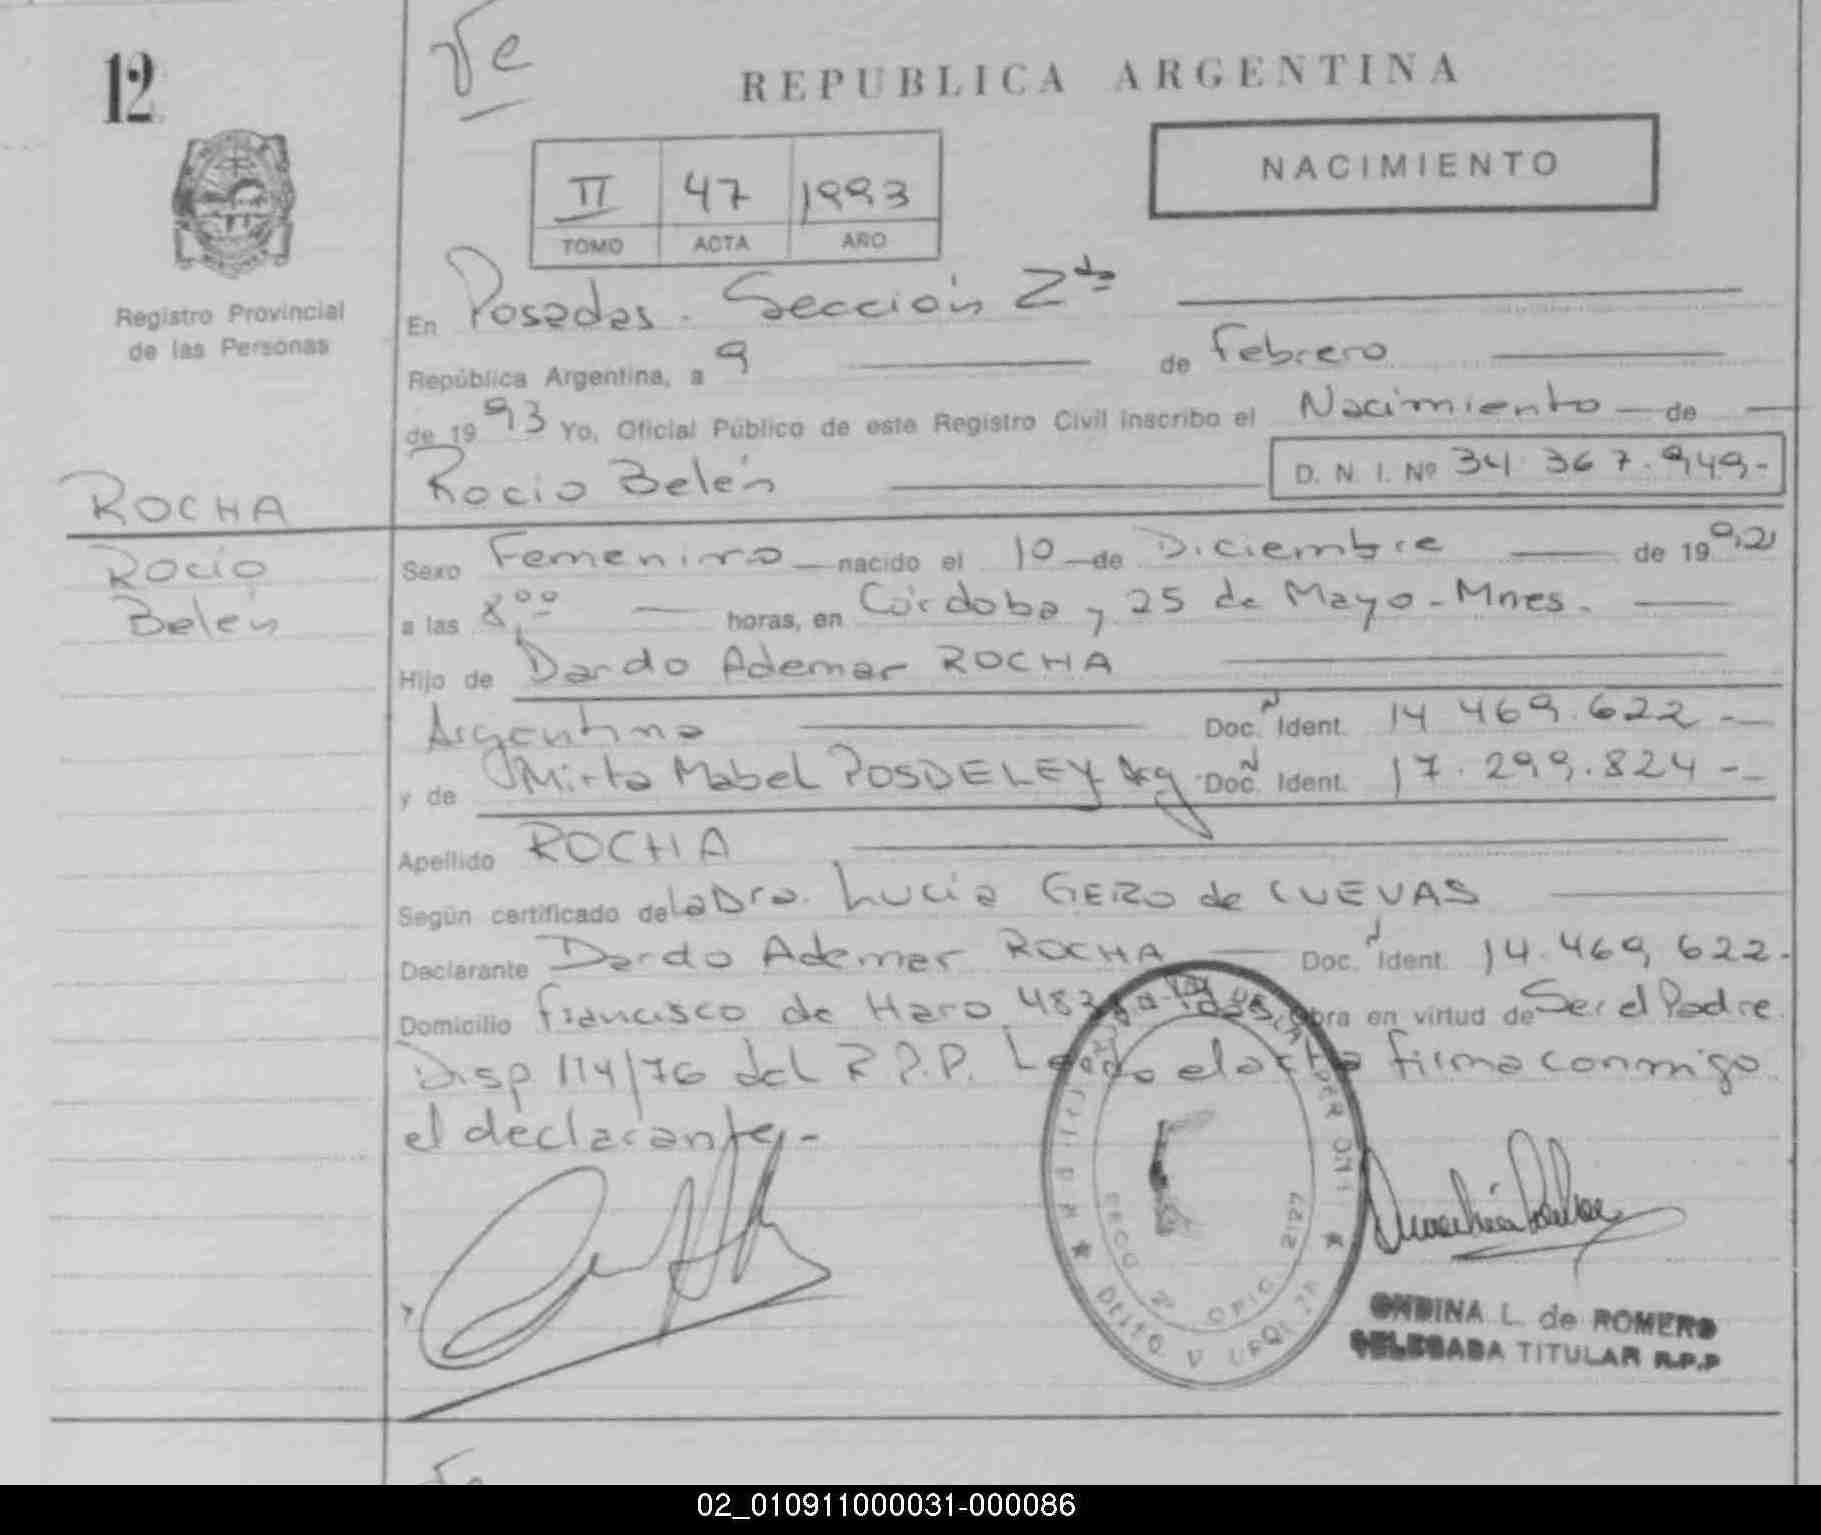 12
REPUBLICA ARGENTINA
NACIMIENTO
II 47 1993
TOMO ACTA AÑO
Registro Provincial
de las Personas
En Posadas. Sección 2da
República Argentina, a 9 de Febrero
de 1993 Yo, Oficial Público de este Registro Civil inscribo el Nacimiento de
Rocio Belén D. N. I. Nº 34.367.949.-
ROCHA
Rocio
Belén
Sexo Femenino nacido el 10 de Diciembre de 1992
a las 8,00 horas, en Córdoba y 25 de Mayo - Mnes.
Hijo de Dardo Ademar ROCHA
Argentino Doc. Ident. 14.469.622 -
y de Mirta Mabel POSDELEY Arg Doc. Ident. 17.299.824 -
Apellido ROCHA
Según certificado de la Dra. Lucia GERZO de CUEVAS
Declarante Dardo Ademar ROCHA Doc. Ident. 14.469.622.
Domicilio Francisco de Haro obra en virtud de Ser el Padre
Disp 114/76 del R.P.P. Leído el acta firma conmigo
el declarante.-
ONDINA L. de ROMERO
DELEGADA TITULAR R.P.P
02_010911000031-000086